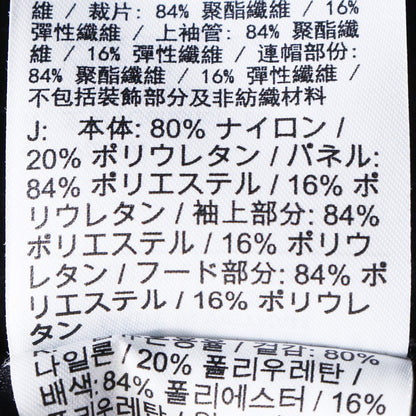 維 / 裁片: 84% 聚酯纖維 / 16%
彈性纖維 / 上袖管: 84% 聚酯纖
維 / 16% 彈性纖維 / 連帽部份:
84% 聚酯纖維 / 16% 彈性纖維 /
不包括裝飾部分及非紡織材料
J: 本体: 80% ナイロン /
20% ポリウレタン / パネル:
84% ポリエステル / 16% ポ
リウレタン / 袖上部分: 84%
ポリエステル / 16% ポリウ
レタン / フード部分: 84% ポ
リエステル / 16% ポリウレ
タン
겉감: 80%
나일론 / 20% 폴리우레탄 /
배색: 84% 폴리에스터 / 16%
폴리우레탄 /